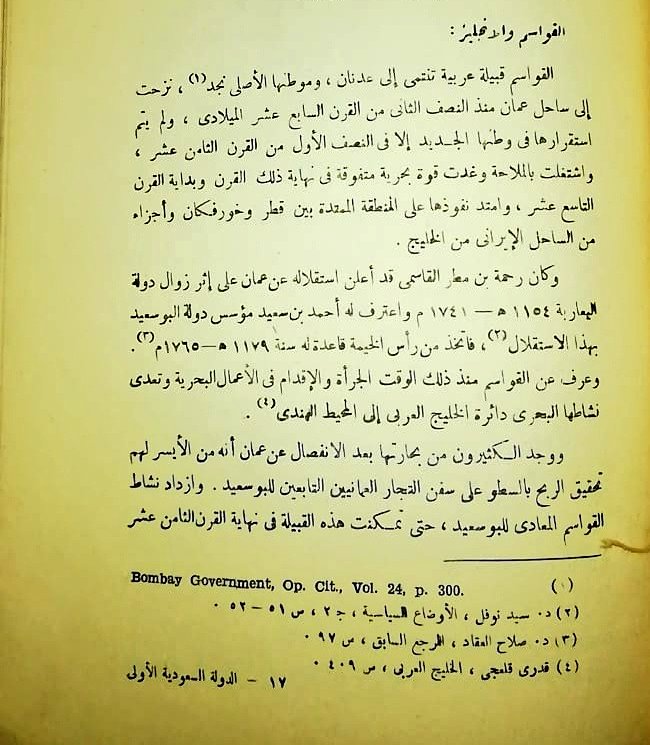 القواسم والانجليز :
القواسم قبيلة عربية تنتمى إلى عدنان ، وموطنها الأصلى نجد(١) ، نزحت
إلى ساحل عمان منذ النصف الثانى من القرن السابع عشر الميلادى ، ولم يتم
استقرارها فى وطنها الجديد إلا فى النصف الأول من القرن الثامن عشر ،
واشتغلت بالملاحة وغدت قوة بحرية متفوقة فى نهاية ذلك القرن وبداية القرن
التاسع عشر ، وامتد نفوذها على المنطقة الممتدة بين قطر وخورفكان وأجزاء
من الساحل الإيرانى من الخليج .
وكان رحمة بن مطر القاسمى قد أعلن استقلاله عن عمان على إثر زوال دولة
اليعاربة ١١٥٤ هـ — ١٧٤١ م واعترف له أحمد بن سعيد مؤسس دولة البوسعيد
بهذا الاستقلال(٢) ، فاتخذ من رأس الخيمة قاعدة له سنة ١١٧٩ هـ — ١٧٦٥م(٣) .
وعرف عن القواسم منذ ذلك الوقت الجرأة والإقدام فى الأعمال البحرية وتعدى
نشاطها البحرى دائرة الخليج العربى إلى المحيط الهندى(٤) .
ووجد الكثيرون من بحارتها بعد الانفصال عن عمان أنه من الأيسر لهم
تحقيق الربح بالسطو على سفن التجار العمانيين التابعين للبوسعيد . وازداد نشاط
القواسم المعادى للبوسعيد ، حتى تمكنت هذه القبيلة فى نهاية القرن الثامن عشر
(١) Bombay Government, Op. Cit., Vol. 24, p. 300.
(٢) د. سيد نوفل ، الأوضاع السياسية ، ج ٢ ، ص ٥١ — ٥٢ .
(٣) د. صلاح العقاد ، المرجع السابق ، ص ٩٧ .
(٤) قدرى قلعجى ، الخليج العربى ، ص ٤٠٩ .
١٧ — الدولة السعودية الأولى